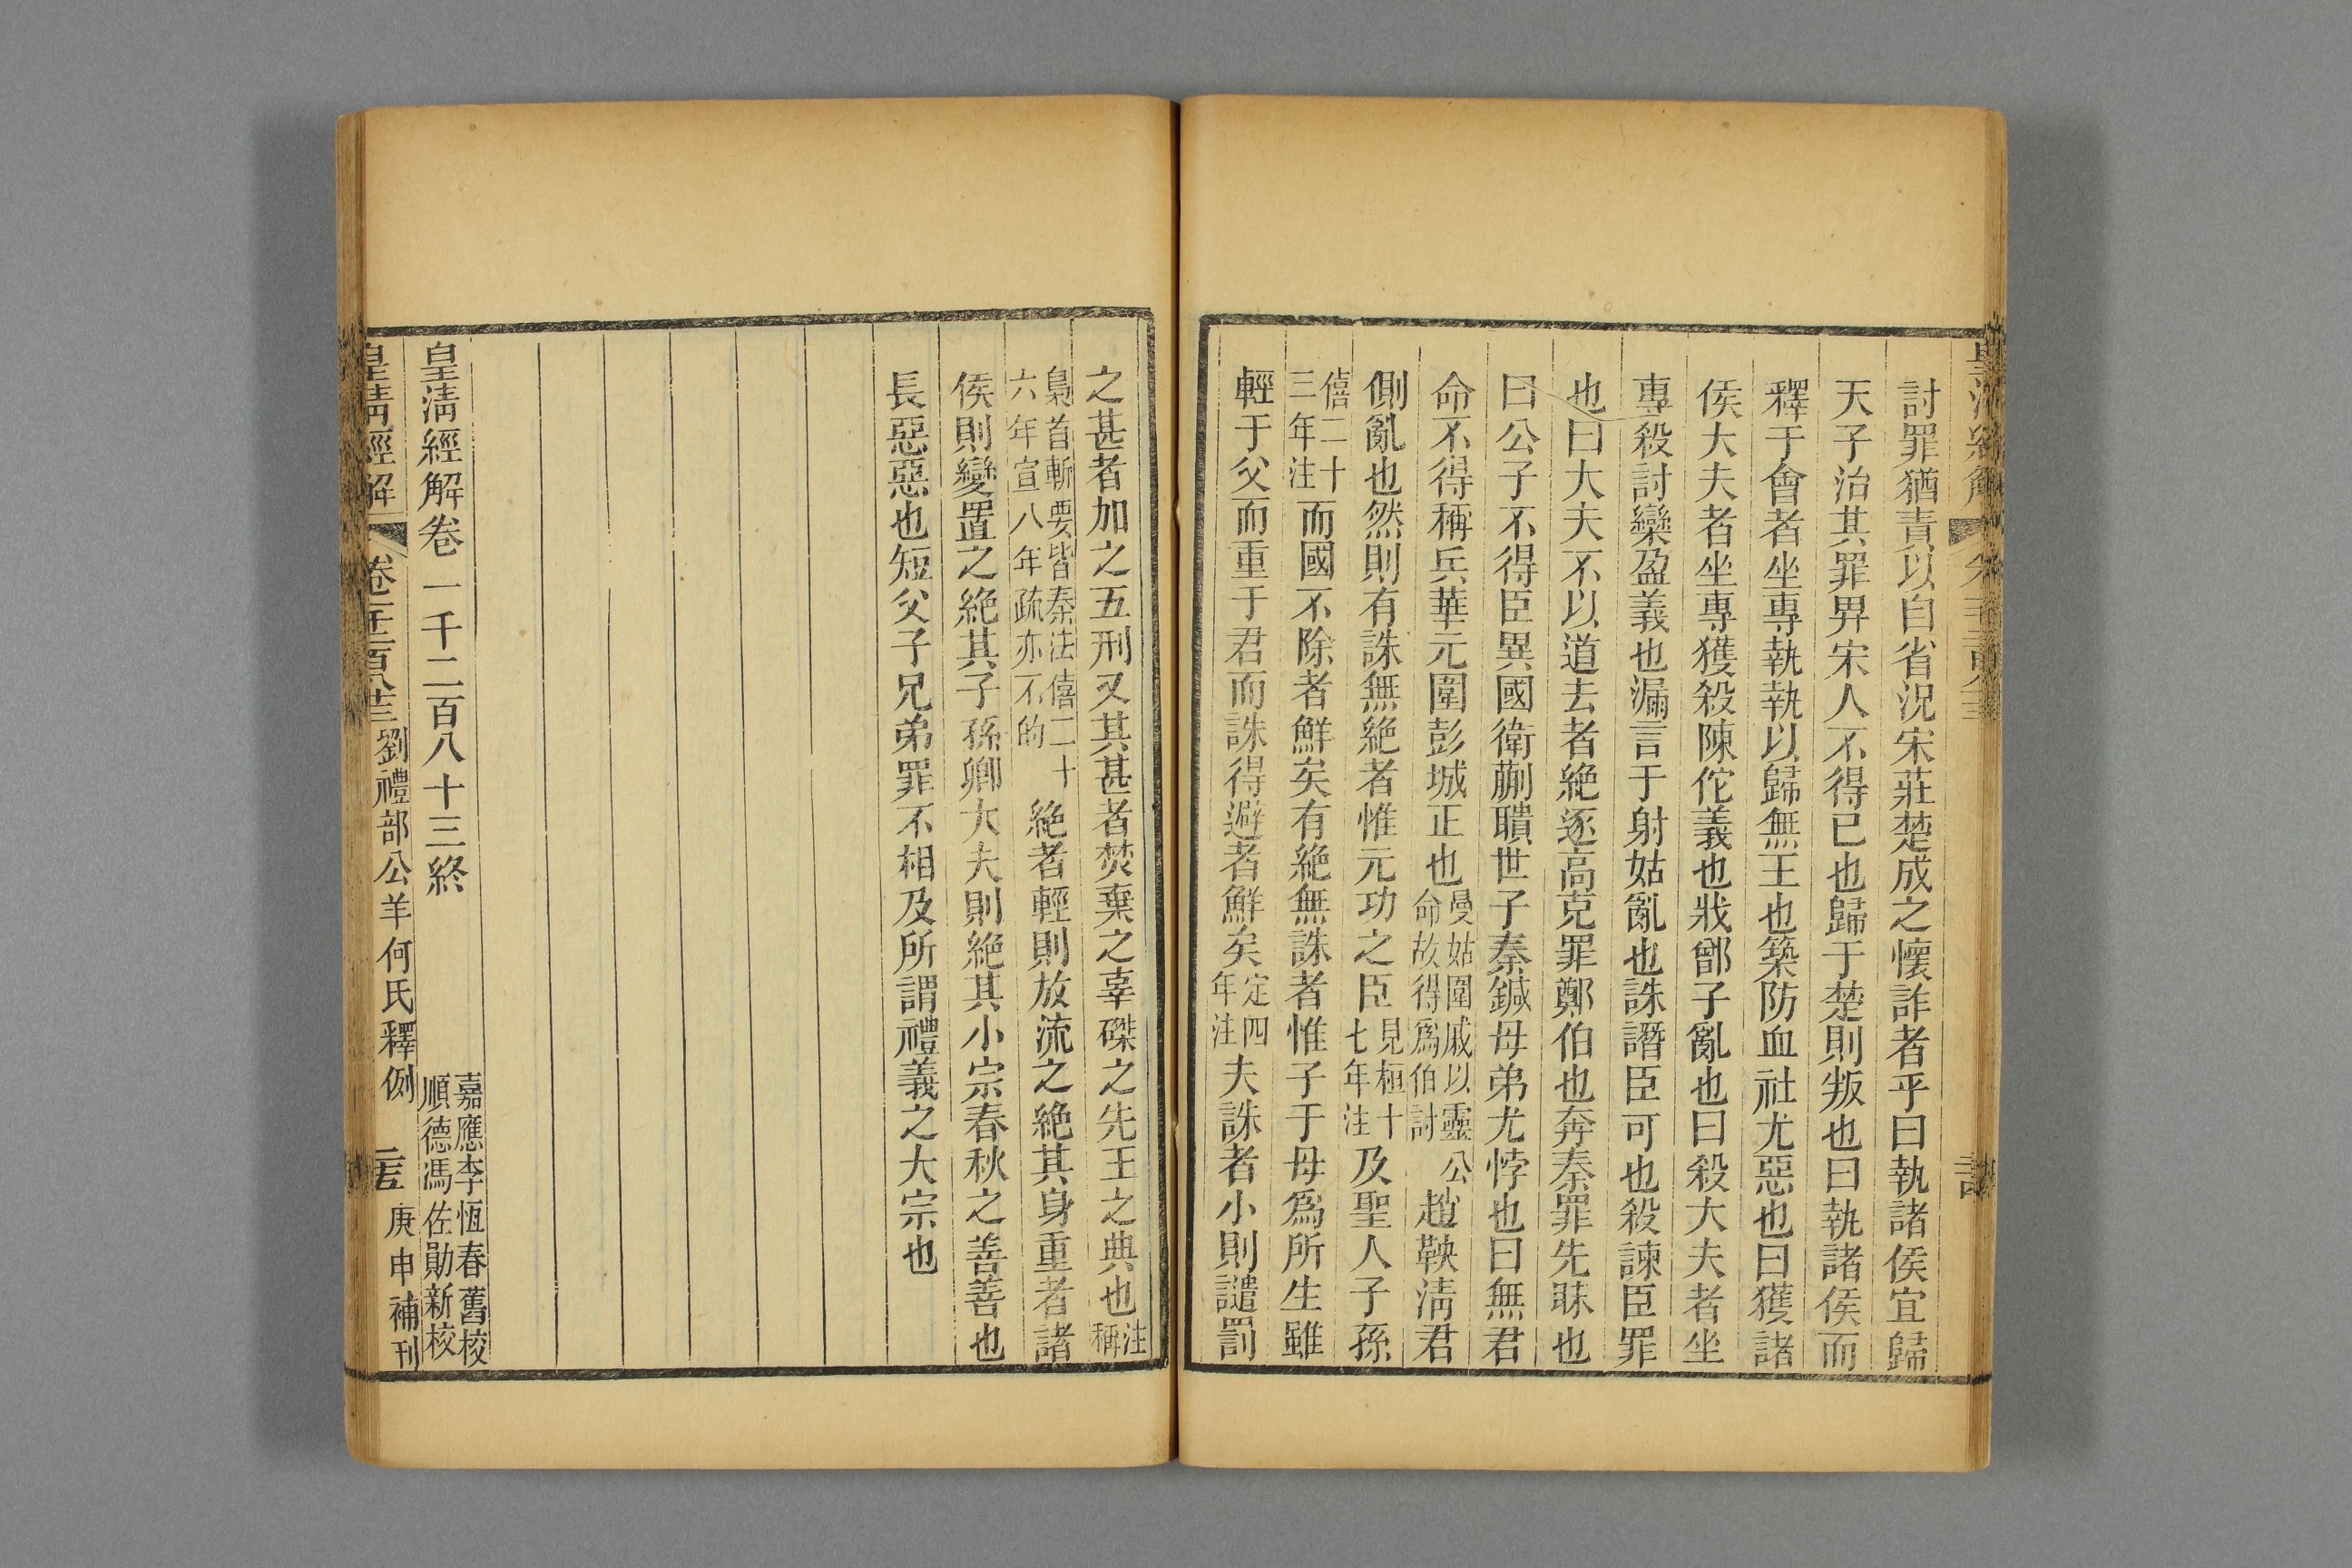 討罪猶責以自省況宋莊楚成之懷詐者乎曰執諸侯宜歸
天子治其罪畀宋人不得已也歸于楚則叛也曰執諸侯而
釋于會者坐專執執以歸無王也築防血社尤惡也曰獲諸
侯大夫者坐專獲殺陳佗義也戕鄫子亂也曰殺大夫者坐
專殺討欒盈義也漏言于射姑亂也誅譖臣可也殺諫臣罪
也曰大夫不以道去者絕逐高克罪鄭伯也奔秦罪先眛也
曰公子不得臣異國衛蒯聵世子秦鍼母弟尤悖也曰無君
命不得稱兵華元圍彭城正也曼姑圍戚以靈公命故得爲伯討趙鞅淸君
側亂也然則有誅無絕者惟元功之臣見桓十七年注及聖人子孫
僖二十三年注而國不除者鮮矣有絕無誅者惟子于母爲所生雖
輕于父而重于君而誅得避者鮮矣定四年注夫誅者小則譴罰
之甚者加之五刑又其甚者焚棄之辜磔之先王之典也注稱
梟首斬要皆秦法僖二十六年宣八年疏亦不的絕者輕則放流之絕其身重者諸
侯則變置之絕其子孫卿大夫則絕其小宗春秋之善善也
長惡惡也短父子兄弟罪不相及所謂禮義之大宗也
皇淸經解卷一千二百八十三終
嘉應李恆春舊校
順德馮佐勛新校
皇淸經解 卷一千二百八十三 劉禮部公羊何氏釋例 庚申補刊